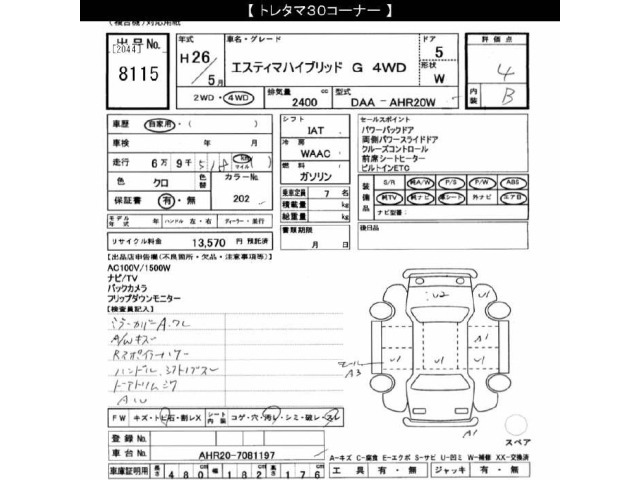 【 トレタマ30コーナー 】
(複合機)対応用紙
出品No.
[2044]
8115
年式
H 26/5月
車名・グレード
エスティマハイブリッド G 4WD
ドア 5
形状 W
評価点
4
内装 B
2WD・4WD
排気量 2400 cc
型式 DAA - AHR20W
車歴 自家用・( )
車検 年 月
走行 6万 9千 518 km マイル
色 クロ
色替
カラーNo. 202
保証書 有・無
シフト IAT
冷房 WAAC
燃料 ガソリン
乗車定員 7 名
積載量 kg
総重量 kg
セールスポイント
パワーバックドア
両側パワースライドドア
クルーズコントロール
前席シートヒーター
ビルトインETC
装備品
S/R 純A/W P/S P/W ABS
純TV 純ナビ 革シート 外ナビ エアB
ナビ型番:
モデル年式 年 ハンドル 左・右 ディーラー・並行
書類期限 月 日
後日品
リサイクル料金 13,570 円 預託済
【出品店申告欄(不良箇所・欠品・注意事項等)】
AC100V/1500W
ナビ/TV
バックカメラ
フリップダウンモニター
【検査員記入】
ミラーカバーAワレ
A/Wキズ
ハンドル、シフトノブスレ
A1U
U2 U1
U1 U1 U1
モール A3
A1
スペア
FW キズ・トビ石・割レX
シート内張 コゲ・穴・汚レ・シミ・破レ・スレ
登録No.
車台No. AHR20-7081197
A-キズ C-腐食 E-エクボ S-サビ U-凹ミ W-補修 XX-交換済
車庫証明用 長さ 480cm 幅 182cm 高さ 176cm
工具 有・無 ジャッキ 有・無